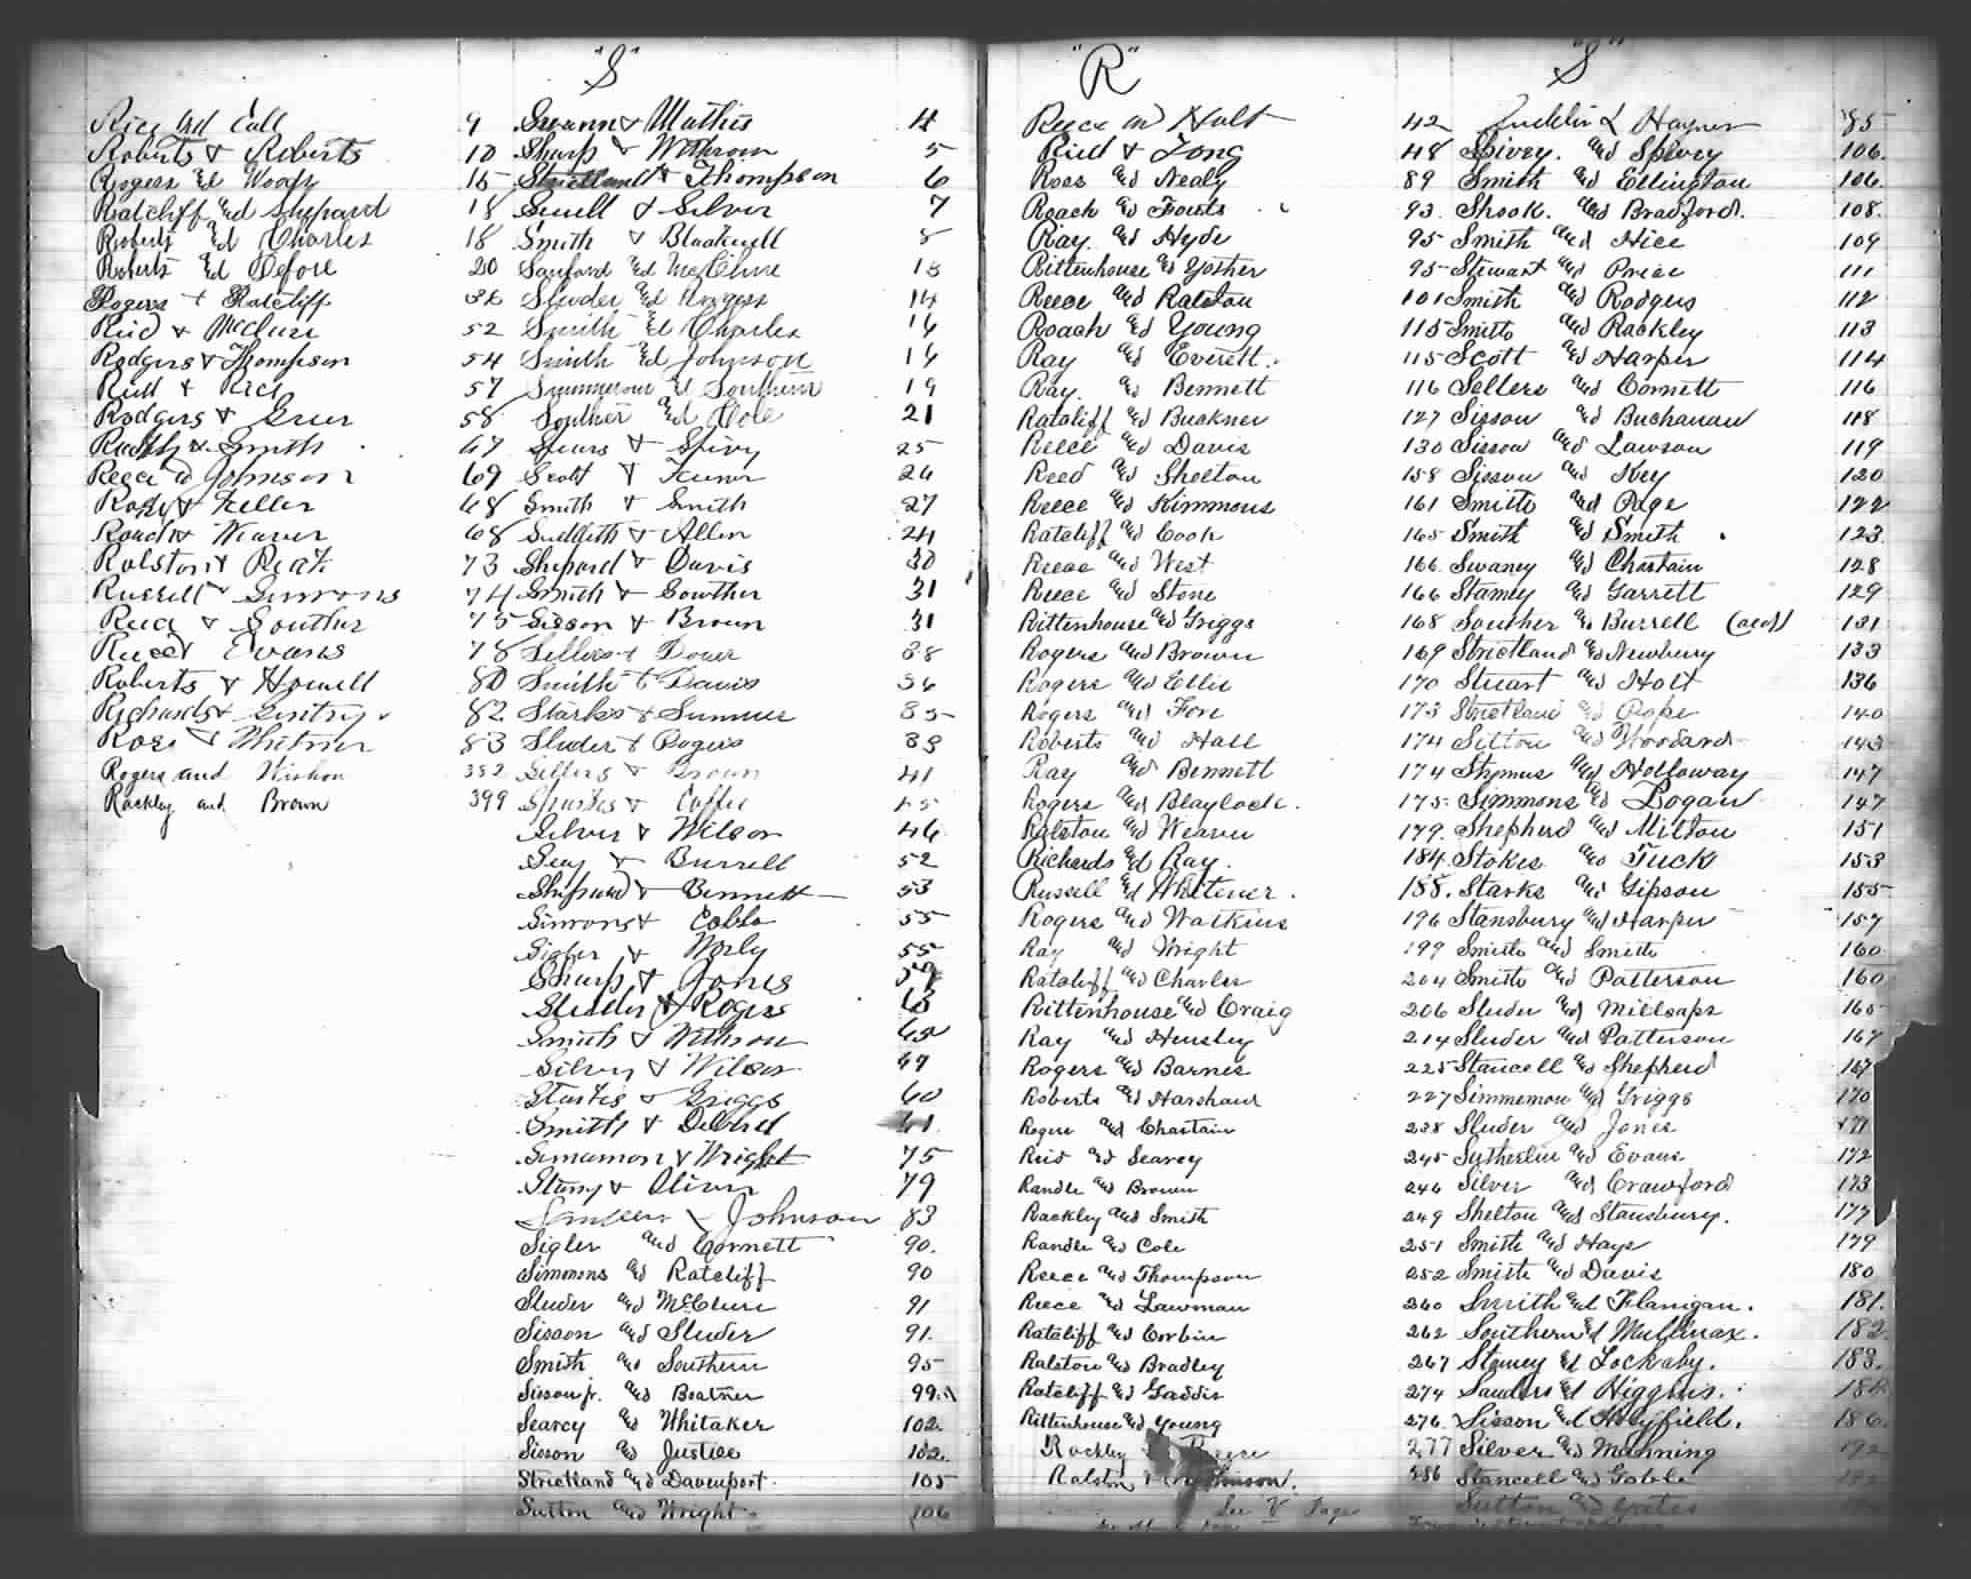 "S"
Rice and Call 9
Roberts & Roberts 10
Rogers and Woody 15
Ratcliff and Shepard 18
Roberts and Charles 18
Roberts and Defore 20
Rogers & Ratcliff
Reid & McClure 52
Rodgers & Thompson 54
Rull & Rice 57
Rodgers & Greer 58
& Smith 67
Reece & Johnson 69
& Feller 68
Roach & Weaver 68
Ralston & 73
Russell & Simmons 74
& Souther 75
& Evans 78
Roberts & Howell 80
Richards & Gentry 82
Ross & Whitner 83
Rogers and Wishon 392
Rackley and Brown 399
Swann & Mathis 4
Sharp & Withrow 5
Strickland & Thompson 6
Sewell & Silver 7
Smith & Blackwell 8
Sanford and McClure 13
Sluder and Rogers 14
Smith and Charles 16
Smith and Johnson 16
and Southern 19
Souther and Cole 21
Spears & Spivy 25
Scott & 26
Smith & Smith 27
Sudderth & Allen 24
Shepard & Davis 30
Smith & Souther 31
Sisson & Brown 31
Sellers & Dover 38
Smith & Davis 36
Starks & Sumner 35
Sluder & Rogers 38
Sellers & Brown 41
Sparks & Coffee 45
Silver & Wilson 46
Seay & Burrell 52
Shepard & Bennett 53
Simmons & Cobb 55
Sigler & Worly 55
Sharp & Jones 59
Sluder & Rogers 63
Smith & Withrow
Silvey & Wilson 47
& Griggs 60
Smith & Deverel 61
Sinamon & Wright 75
& Oliver 79
& Johnson 83
Sigler and Cornett 90.
Simmons and Ratcliff 90
Sluder and McClure 91
Sisson and Sluder 91.
Smith and Southern 95
Sisson jr. and Boatner 99
Searcy and Whitaker 102.
Sisson and Justice 102.
Strickland and Davenport. 105
Sutton and Wright 106
"R"
Reece and Holt 42
Rull & Long 48
Ross and Nealy 89
Roach and Fouts 93.
Ray. and Hyde 95
Rittenhouse and Yother 95
Reece and Ralston 101
Roach and Young 115
Ray and Everett. 115
Ray. and Bennett 116
Ratcliff and Buckner 127
Reece and Davis 130
Reed and Shelton 158
Reece and Kimmons 161
Ratcliff and Cook 165
Reece and West 166.
Reece and Stone 166
Rittenhouse and Griggs 168
Rogers and Brown 169
Rogers and Ellis 170
Rogers and Fore 173
Roberts and Hall 174
Ray and Bennett 174
Rogers and Blaylock. 175.
Ralston and Weaver 179.
Richards and Ray. 184.
Russell and Whitener. 188.
Rogers and Watkins 196
Ray and Wright 199
Ratcliff and Charles 204
Rittenhouse and Craig 206
Ray and Hensley 214
Rogers and Barnes 225
Roberts and Harshaw 227
Rogers and Chastain 238
Reid and Searcy 245
Randle and Brown 246
Rackley and Smith 249
Randle and Cole 251
Reece and Thompson 252
Reece and Lawman 260
Ratcliff and Corbin 262
Ralston and Bradley 267
Ratcliff and Gaddis 274
Rittenhouse and Young 276.
Rackley Reece 277
Ralston Johnson. 286
See V Page
"S"
& Hayner 85
Spivey. and Spivey 106.
Smith and Ellington 106.
Shook. and Bradford. 108.
Smith and Hice 109
Stewart and Price 111
Smith and Rodgers 112
Smith and Rackley 113
Scott and Harper 114
Sellers and Cornett 116
Sisson and Buchanan 118
Sisson and Lawson 119
Sisson and Key 120
Smith and Page 122
Smith and Smith 123
Swaney and Chastain 128
Stamey and Garrett 129
Souther and Burrell 131
Strickland and Newberry 133
Stuart and Holt 136
Strickland and Pope 140
Sitton and Woodard 143
Stymus and Holloway 147
Simmons and Logan 147
Shepherd and Milton 151
Stokes and Tuck 153
Starks and Gipson 155
Stansbury and Harper 157
Smith and Smith 160
Smith and Patterson 160
Sluder and Millsaps 165
Sluder and Patterson 167
Stancell and Shepherd 167
Simmemon and Griggs 170
Sluder and Jones 171
Sutherlin and Evans 172
Silver and Crawford 173
Shelton and Stansbury. 177
Smith and Hays 179
Smith and Davis 180
Smith and Flanigan. 181.
Southern and Mullinax. 182.
Stamey and Lockaby. 183.
Sanders and Higgins. 184
Sisson and Holyfield. 186.
Silver and Manning 192
Stancell and Goble
Sutton and Yates